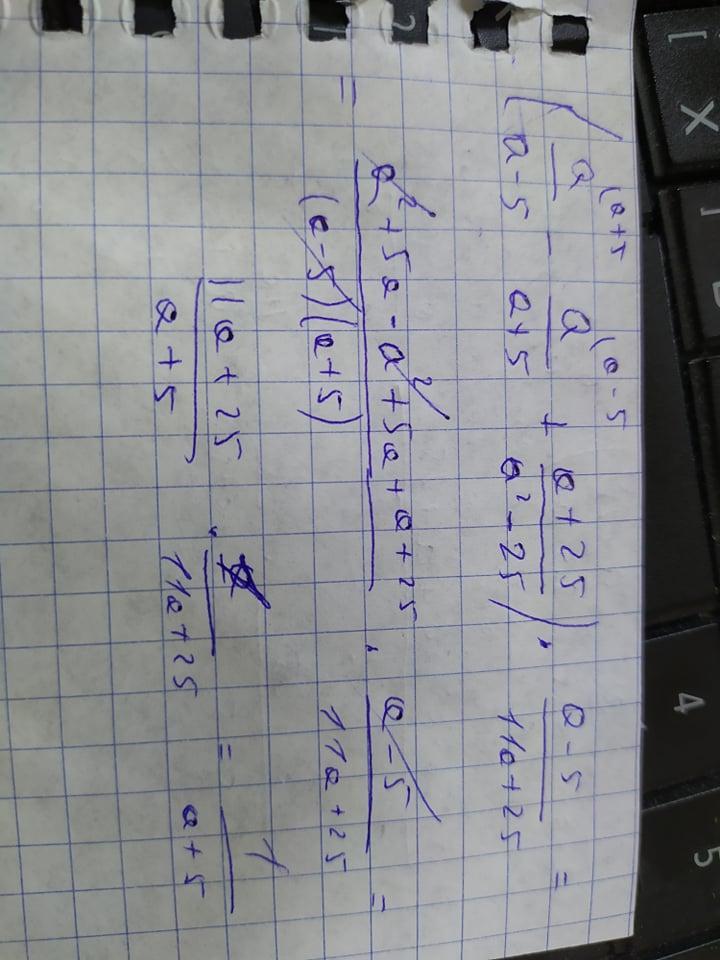 (a/(a-5) (a+5 - a/(a+5) (a-5 + (a+25)/(a²-25)) · (a-5)/(11a+25) =
= (a²+5a-a²+5a+a+25)/((a-5)(a+5)) · (a-5)/(11a+25) =
(11a+25)/(a+5) · /(11a+25) = 1/(a+5)
[
X
4
5